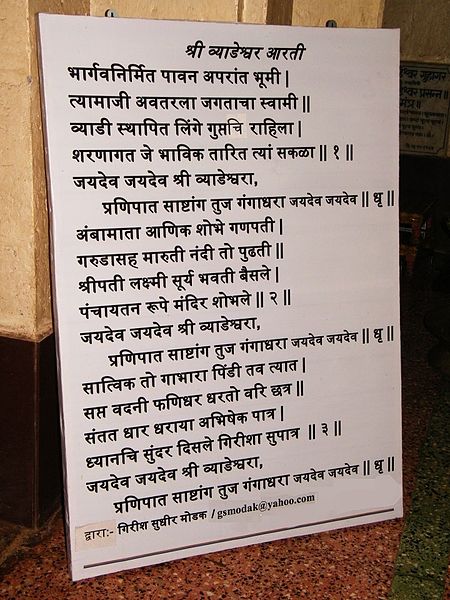 श्री व्याडेश्वर आरती
भार्गवनिर्मित पावन अपरांत भूमी |
त्यामाजी अवतरला जगताचा स्वामी ||
व्याडी स्थापित लिंगे गुप्तचि राहिला |
शरणागत जे भाविक तारित त्यां सकळा || १ ||
जयदेव जयदेव श्री व्याडेश्वरा,
प्रणिपात साष्टांग तुज गंगाधरा जयदेव जयदेव || धृ ||
अंबामाता आणिक शोभे गणपती |
गरुडासह मारुती नंदी तो पुढती ||
श्रीपती लक्ष्मी सूर्य भवती बैसले |
पंचायतन रूपे मंदिर शोभले || २ ||
जयदेव जयदेव श्री व्याडेश्वरा,
प्रणिपात साष्टांग तुज गंगाधरा जयदेव जयदेव || धृ ||
सात्विक तो गाभारा पिंडी तव त्यात |
सप्त वदनी फणिधर धरतो वरि छत्र ||
संतत धार धराया अभिषेक पात्र |
ध्यानचि सुंदर दिसले गिरीशा सुपात्र || ३ ||
जयदेव जयदेव श्री व्याडेश्वरा,
प्रणिपात साष्टांग तुज गंगाधरा जयदेव जयदेव || धृ ||
द्वाराः- गिरीश सुधीर मोडक / gsmodak@yahoo.com